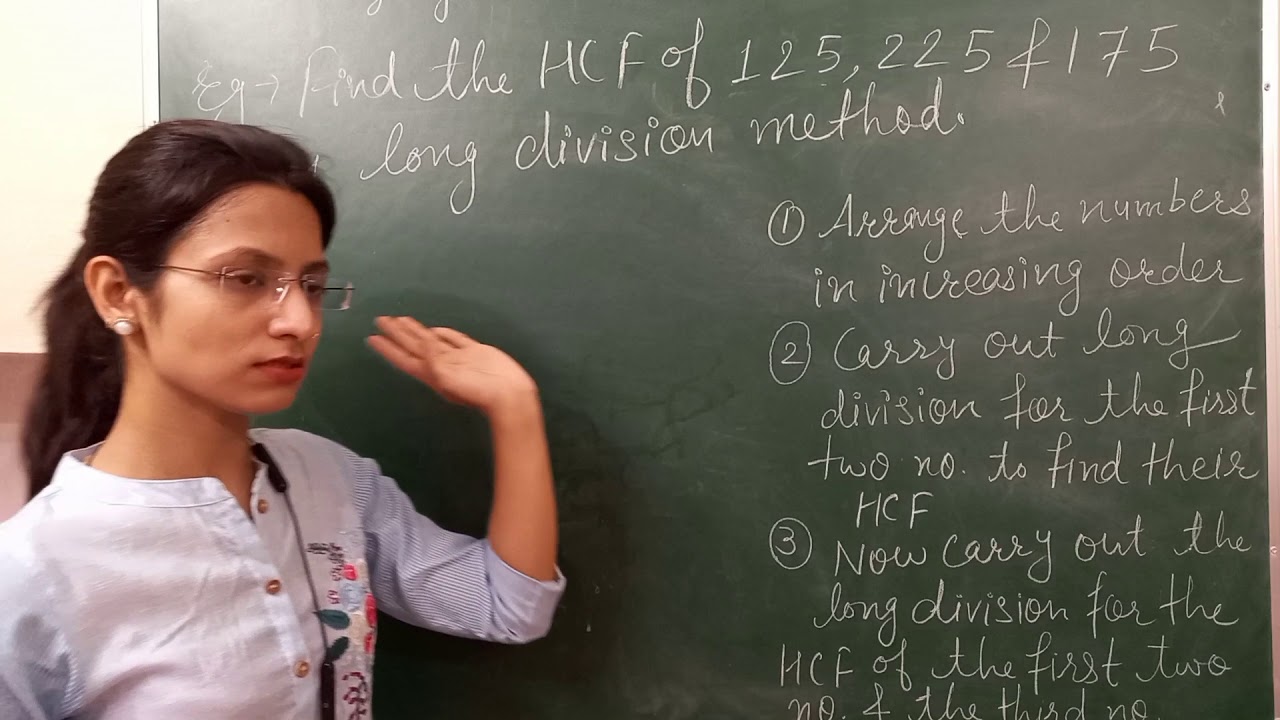 Eg → Find the HCF of 125, 225 & 175
long division method.
① Arrange the numbers
in increasing order
② Carry out long
division for the first
two no. to find their
HCF
③ Now carry out the
long division for the
HCF of the first two
no. & the third no.